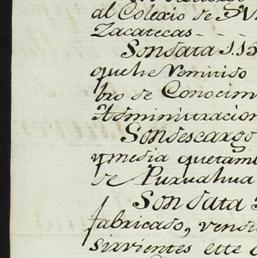 al Colexio de
Zacatecas.
Son data
que he Remitido
bro de Conocim
Administracion
Son descargo
y media que tamb
de Puruahua
Son data
fabricado, vend
sirvientes ette